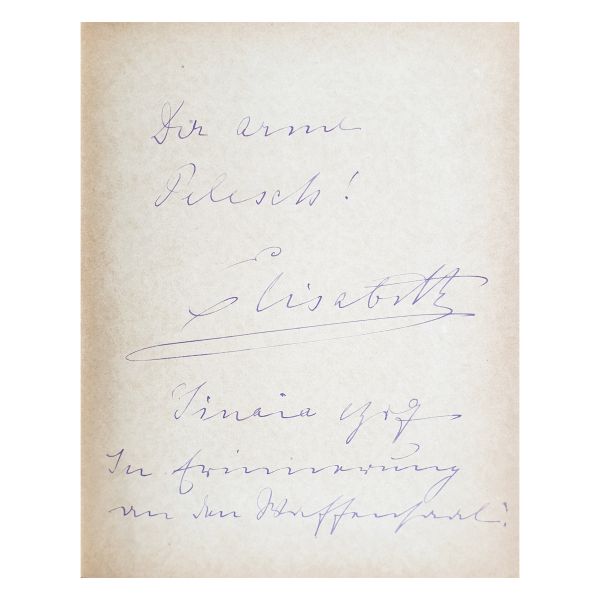 Der arme
Pelesch!
Elisabeth
Sinaia
In Erinnerung
an den Waffensaal!